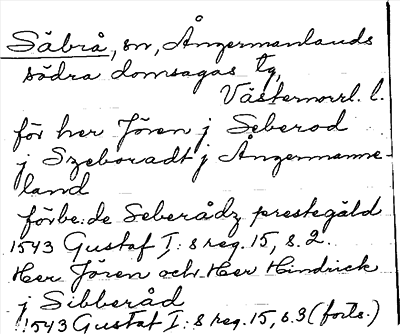 Säbrå, sn, Ångermanlands
södra domsagas tg,
Västernorrl. l.
för her Jören j Seberod
j Szeboradt j Ångermanne-
land
förbe:de Seberådz prestegäld
1543 Gustaf I:s reg. 15, s. 2.
Her Jören och Her Hindrick
j Sibberåd
1543 Gustaf I:s reg. 15, s. 3 (forts.)